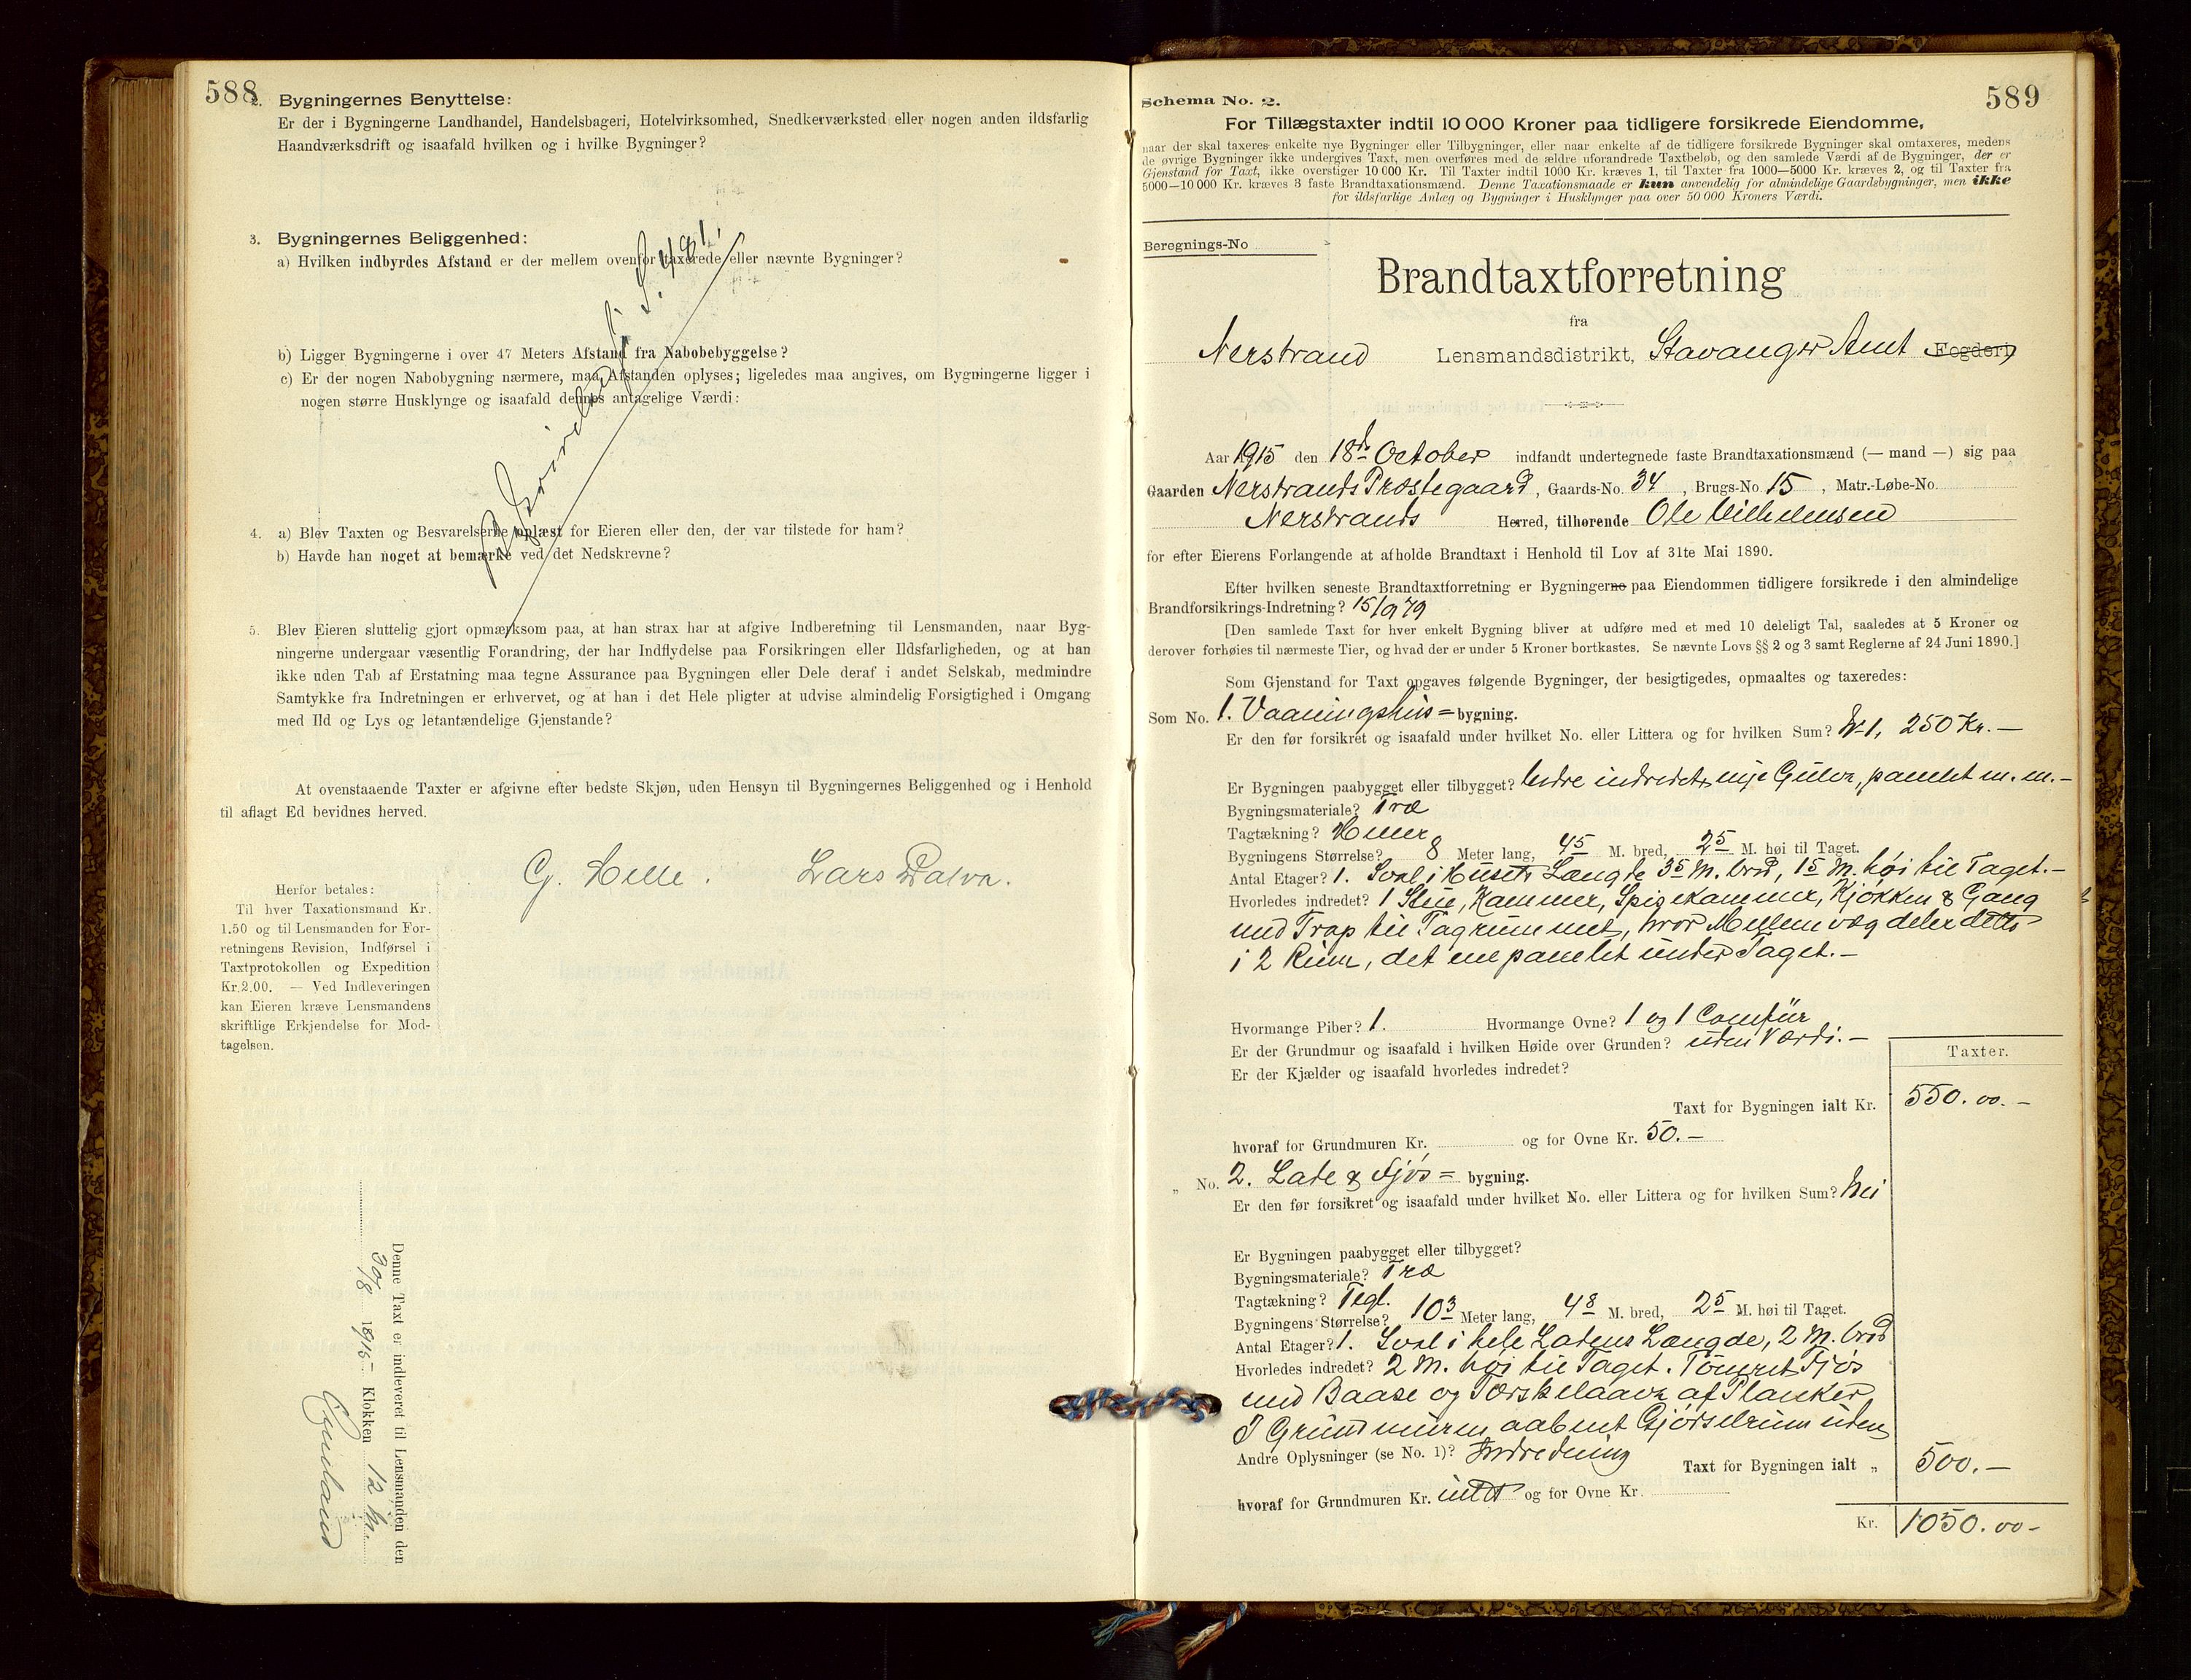 588
2. Bygningernes Benyttelse:
Er der i Bygningerne Landhandel, Handelsbageri, Hotelvirksomhed, Snedkerværksted eller nogen anden ildsfarlig
Haandværksdrift og isaafald hvilken og i hvilke Bygninger?
3. Bygningernes Beliggenhed:
a) Hvilken indbyrdes Afstand er der mellem ovenfor taxerede eller nævnte Bygninger?
b) Ligger Bygningerne i over 47 Meters Afstand fra Nabobebyggelse?
c) Er der nogen Nabobygning nærmere, maa Afstanden oplyses; ligeledes maa angives, om Bygningerne ligger i
nogen større Husklynge og isaafald dennes antagelige Værdi:
4. a) Blev Taxten og Besvarelserne oplæst for Eieren eller den, der var tilstede for ham?
b) Havde han noget at bemærke ved det Nedskrevne?
5. Blev Eieren sluttelig gjort opmærksom paa, at han strax har at afgive Indberetning til Lensmanden, naar Byg-
ningerne undergaar væsentlig Forandring, der har Indflydelse paa Forsikringen eller Ildsfarligheden, og at han
ikke uden Tab af Erstatning maa tegne Assurance paa Bygningen eller Dele deraf i andet Selskab, medmindre
Samtykke fra Indretningen er erhvervet, og at han i det Hele pligter at udvise almindelig Forsigtighed i Omgang
med Ild og Lys og letantændelige Gjenstande?
At ovenstaaende Taxter er afgivne efter bedste Skjøn, uden Hensyn til Bygningernes Beliggenhed og i Henhold
til aflagt Ed bevidnes herved.
G. Helle. Lars
Herfor betales:
Til hver Taxationsmand Kr.
1.50 og til Lensmanden for For-
retningens Revision, Indførsel i
Taxtprotokollen og Expedition
Kr. 2.00. — Ved Indleveringen
kan Eieren kræve Lensmandens
skriftlige Erkjendelse for Mod-
tagelsen.
Denne Taxt er indleveret til Lensmanden den
30/8 1915 Klokken 12
589
Schema No. 2.
For Tillægstaxter indtil 10 000 Kroner paa tidligere forsikrede Eiendomme,
naar der skal taxeres enkelte nye Bygninger eller Tilbygninger, eller naar enkelte af de tidligere forsikrede Bygninger skal omtaxeres, medens
de øvrige Bygninger ikke undergives Taxt, men overføres med de ældre uforandrede Taxtbeløb, og den samlede Værdi af de Bygninger, der er
Gjenstand for Taxt, ikke overstiger 10 000 Kr. Til Taxter indtil 1000 Kr. kræves 1, til Taxter fra 1000—5000 Kr. kræves 2, og til Taxter fra
5000—10 000 Kr. kræves 3 faste Brandtaxationsmænd. Denne Taxationsmaade er kun anvendelig for almindelige Gaardsbygninger, men ikke
for ildsfarlige Anlæg og Bygninger i Husklynger paa over 50 000 Kroners Værdi.
Beregnings-No
Brandtaxtforretning
fra
Nerstrand Lensmandsdistrikt, Stavanger Amt Fogderi
Aar 1915 den 18de October indfandt undertegnede faste Brandtaxationsmænd (— mand —) sig paa
Gaarden Nerstrands Præstegaard, Gaards-No. 34, Brugs-No. 15, Matr.-Løbe-No.
Nerstrands Herred, tilhørende Ole Vilhelmsen
for efter Eierens Forlangende at afholde Brandtaxt i Henhold til Lov af 31te Mai 1890.
Efter hvilken seneste Brandtaxtforretning er Bygningerne paa Eiendommen tidligere forsikrede i den almindelige
Brandforsikrings-Indretning? 15/9 79
[Den samlede Taxt for hver enkelt Bygning bliver at udføre med et med 10 deleligt Tal, saaledes at 5 Kroner og
derover forhøies til nærmeste Tier, og hvad der er under 5 Kroner bortkastes. Se nævnte Lovs §§ 2 og 3 samt Reglerne af 24 Juni 1890.]
Som Gjenstand for Taxt opgaves følgende Bygninger, der besigtigedes, opmaaltes og taxeredes:
Som No. 1. Vaaningshus= bygning.
Er den før forsikret og isaafald under hvilket No. eller Littera og for hvilken Sum? No 1, 250 Kr. —
Er Bygningen paabygget eller tilbygget? bedre indredet, nye Gulve, panelet m.m. —
Bygningsmateriale? Træ
Tagtækning? Heller
Bygningens Størrelse? 8 Meter lang, 45 M. bred, 25 M. høi til Taget.
Antal Etager? 1. Sval i Husets Længde 35 M. bred, 15 M. høi til Taget. —
Hvorledes indredet? 1 Stue, Kammer, Spisekammer, Kjøkken & Gang
med Trap til Tagrummet, hvor Mellemvæg deler dette
i 2 Rum, det ene panelet under Taget. —
Hvormange Piber? 1. Hvormange Ovne? 1 og 1 Comfür
Er der Grundmur og isaafald i hvilken Høide over Grunden? uden Værdi. —
Er der Kjælder og isaafald hvorledes indredet?
Taxter.
Taxt for Bygningen ialt Kr. 550.00. —
hvoraf for Grundmuren Kr. og for Ovne Kr. 50. —
„ No. 2. Lade & Fjøs= bygning.
Er den før forsikret og isaafald under hvilket No. eller Littera og for hvilken Sum? Nei
Er Bygningen paabygget eller tilbygget?
Bygningsmateriale? Træ
Tagtækning? Tegl.
Bygningens Størrelse? 103 Meter lang, 48 M. bred, 25 M. høi til Taget.
Antal Etager? 1. Sval i hele Ladens Længde, 2 M. bred
Hvorledes indredet? 2 M. høi til Taget. Tømret Fjøs
med Baase og Tærskelaave af Planker,
I Grundmuren aabent Gjødselrum uden
Andre Oplysninger (se No. 1)? Indredning Taxt for Bygningen ialt „ 500. —
hvoraf for Grundmuren Kr. intet og for Ovne Kr.
Kr. 1050.00 -